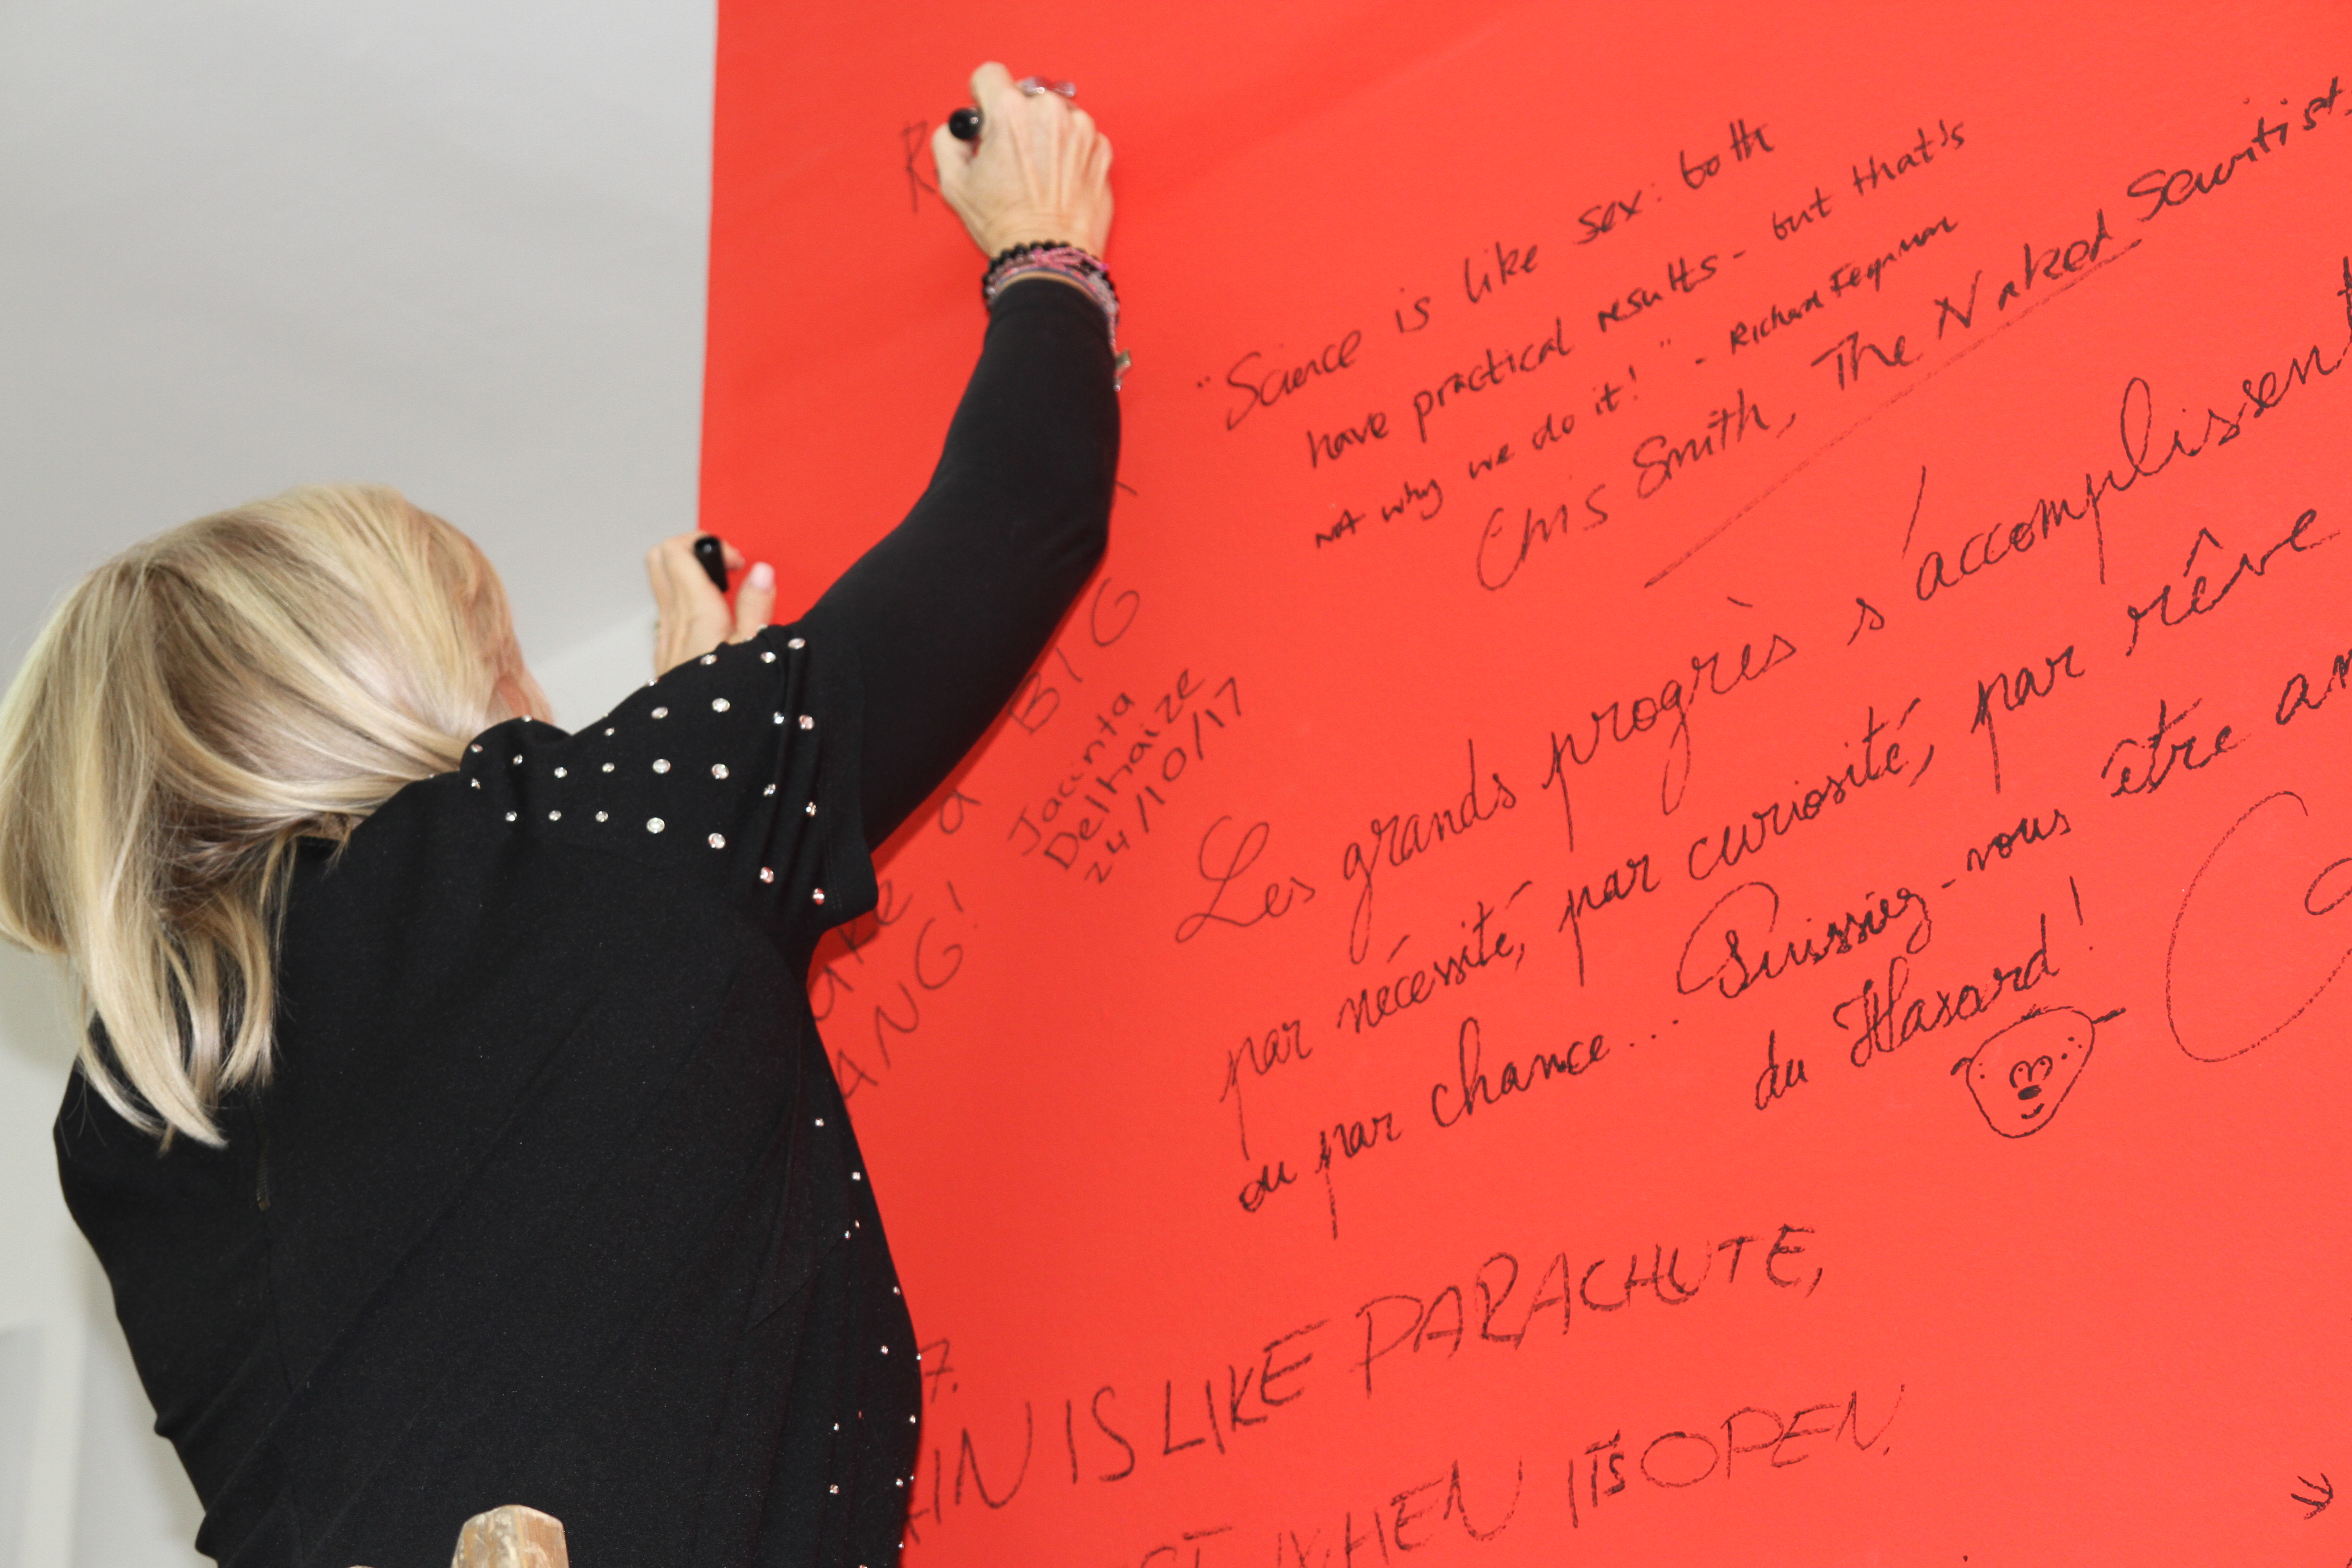 R
"Science is like sex: both
have practical results - but that's
not why we do it!" - Richard Feynman
Chris Smith, The Naked Scientist
a BIG
ANG!
Jacinta
Delhaize
24/10/17
Les grands progrès s'accomplissent
par nécessité, par curiosité, par rêve
ou par chance... Puissiez-vous être
du Hasard!
7.
IS LIKE PARACHUTE,
WHEN IT'S OPEN.